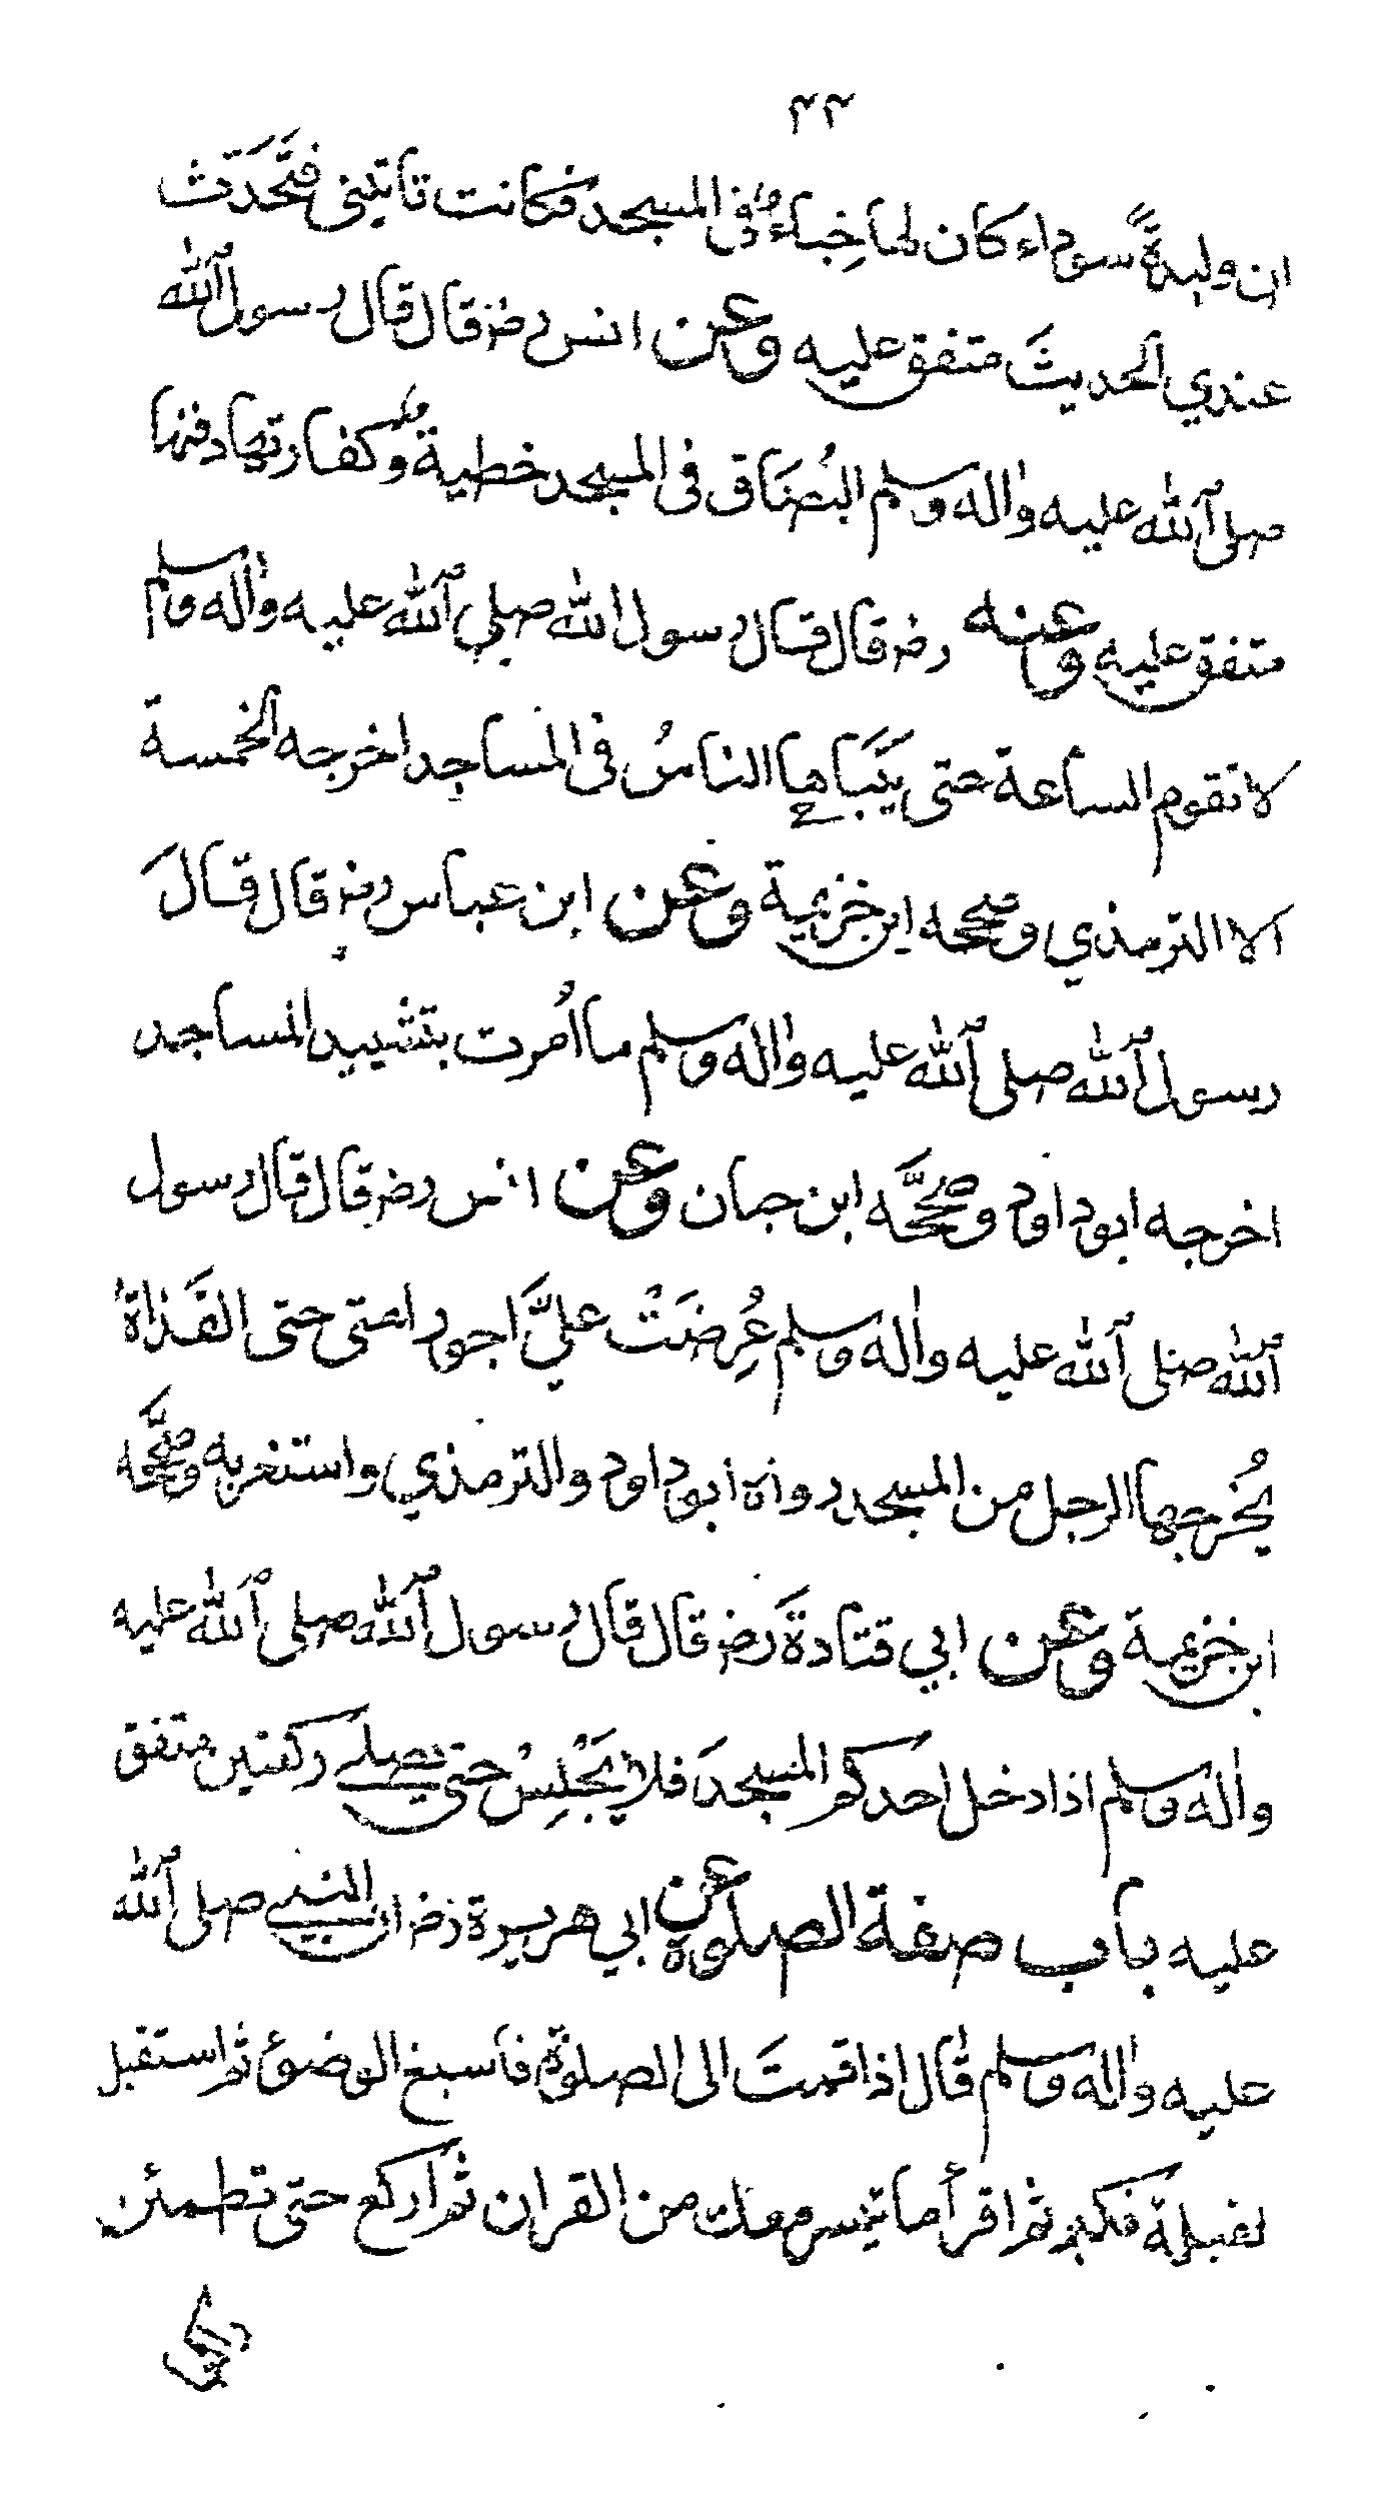 ٢٣
ان وليدةً سوداء كان لها خِباءٌ في المسجد فكانت تاتيني فتَحَدَّث
عندي الحديثَ متفق عليه وعن انس رضه قال قال رسول الله
صلى الله عليه واله وسلم البُصَاق في المسجد خطيئة وكفارتها دفنها
متفق عليه وعنه رضه قال قال رسول الله صلي الله عليه واله وسلم
لا تقوم الساعة حتى يَتَباهى الناسُ في المساجد اخرجه الخمسة
الا الترمذي وصححه ابن خزيمة وعن ابن عباس رضه قال قالَ
رسول الله صلى الله عليه واله وسلم ما اُمرت بتشييد المساجد
اخرجه ابوداود وصححَّه ابن حبان وعن انس رضه قال قال رسول
الله صلى الله عليه واله وسلم عُرِضَتْ عليَّ اجور امتى حتى القَذاةُ
يُخرجها الرجل من المسجد رواه ابوداود والترمذي واستغربه وصحَّحه
ابن خزيمة وعن ابي قتادةَ رضه قال قال رسول الله صلى الله عليه
واله وسلم اذا دخل احدكم المسجدَ فلا يَجْلِسْ حتى يصلے ركعتين متفق
عليه باب صفة الصلوة عن ابي هريرة رضه ان النبي صلى الله
عليه واله وسلم قال اذا قمتَ الى الصلوة فاسبغ الوضوء ثم استقبل
لقبلة فكبر ثم اقرأ ما تيسر معك من القران ثم اركع حتى تطمئن